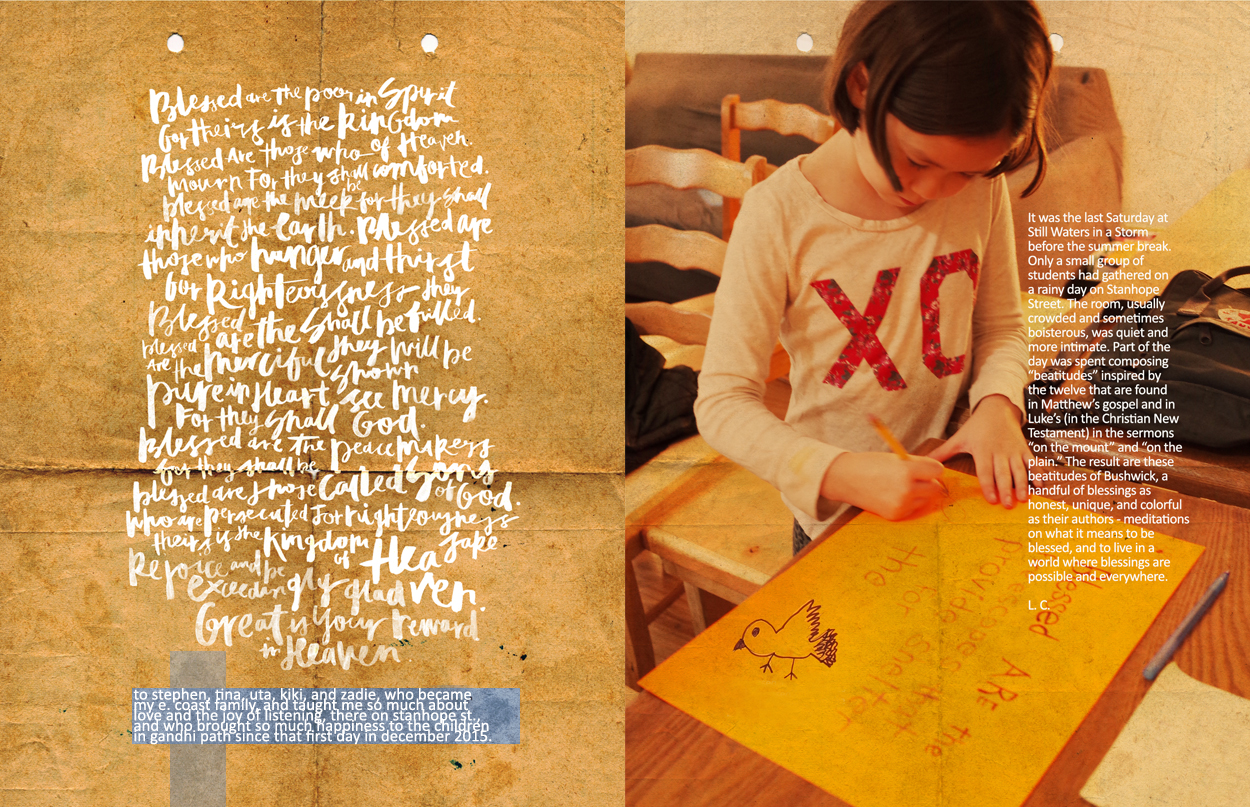 Blessed are the poor in Spirit
for theirs is the kingdom
of Heaven.
Blessed Are those who
mourn For they shall be comforted.
blessed are the meek for they shall
inherit the Earth. Blessed are
those who hunger and thirst
for Righteousness they
shall be filled.
Blessed are the
blessed are the merciful they will be
shown mercy.
Are the
pure in Heart, see
For they shall God.
Blessed are the peacemakers
for they shall be
Called Sons of God.
blessed are those
who are persecuted for righteousness
sake
theirs is the kingdom of Heaven.
Rejoice and be
exceedingly glad
Great is Your reward
in Heaven.
to stephen, tina, uta, kiki, and zadie, who became
my e. coast family, and taught me so much about
love and the joy of listening, there on stanhope st.,
and who brought so much happiness to the children
in gandhi path since that first day in december 2015.
XO
It was the last Saturday at
Still Waters in a Storm
before the summer break.
Only a small group of
students had gathered on
a rainy day on Stanhope
Street. The room, usually
crowded and sometimes
boisterous, was quiet and
more intimate. Part of the
day was spent composing
“beatitudes” inspired by
the twelve that are found
in Matthew’s gospel and in
Luke’s (in the Christian New
Testament) in the sermons
“on the mount” and “on the
plain.” The result are these
beatitudes of Bushwick, a
handful of blessings as
honest, unique, and colorful
as their authors - meditations
on what it means to be
blessed, and to live in a
world where blessings are
possible and everywhere.
L. C.
Blessed ARE the
that
provide
for
the